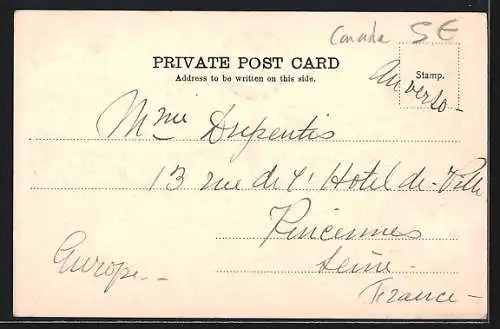 Canada S E
PRIVATE POST CARD
Address to be written on this side.
Stamp.
au verso -
Mme Dupentis
13 rue de l'Hotel-de-Ville
Vincennes
Europe -
Seine
France -